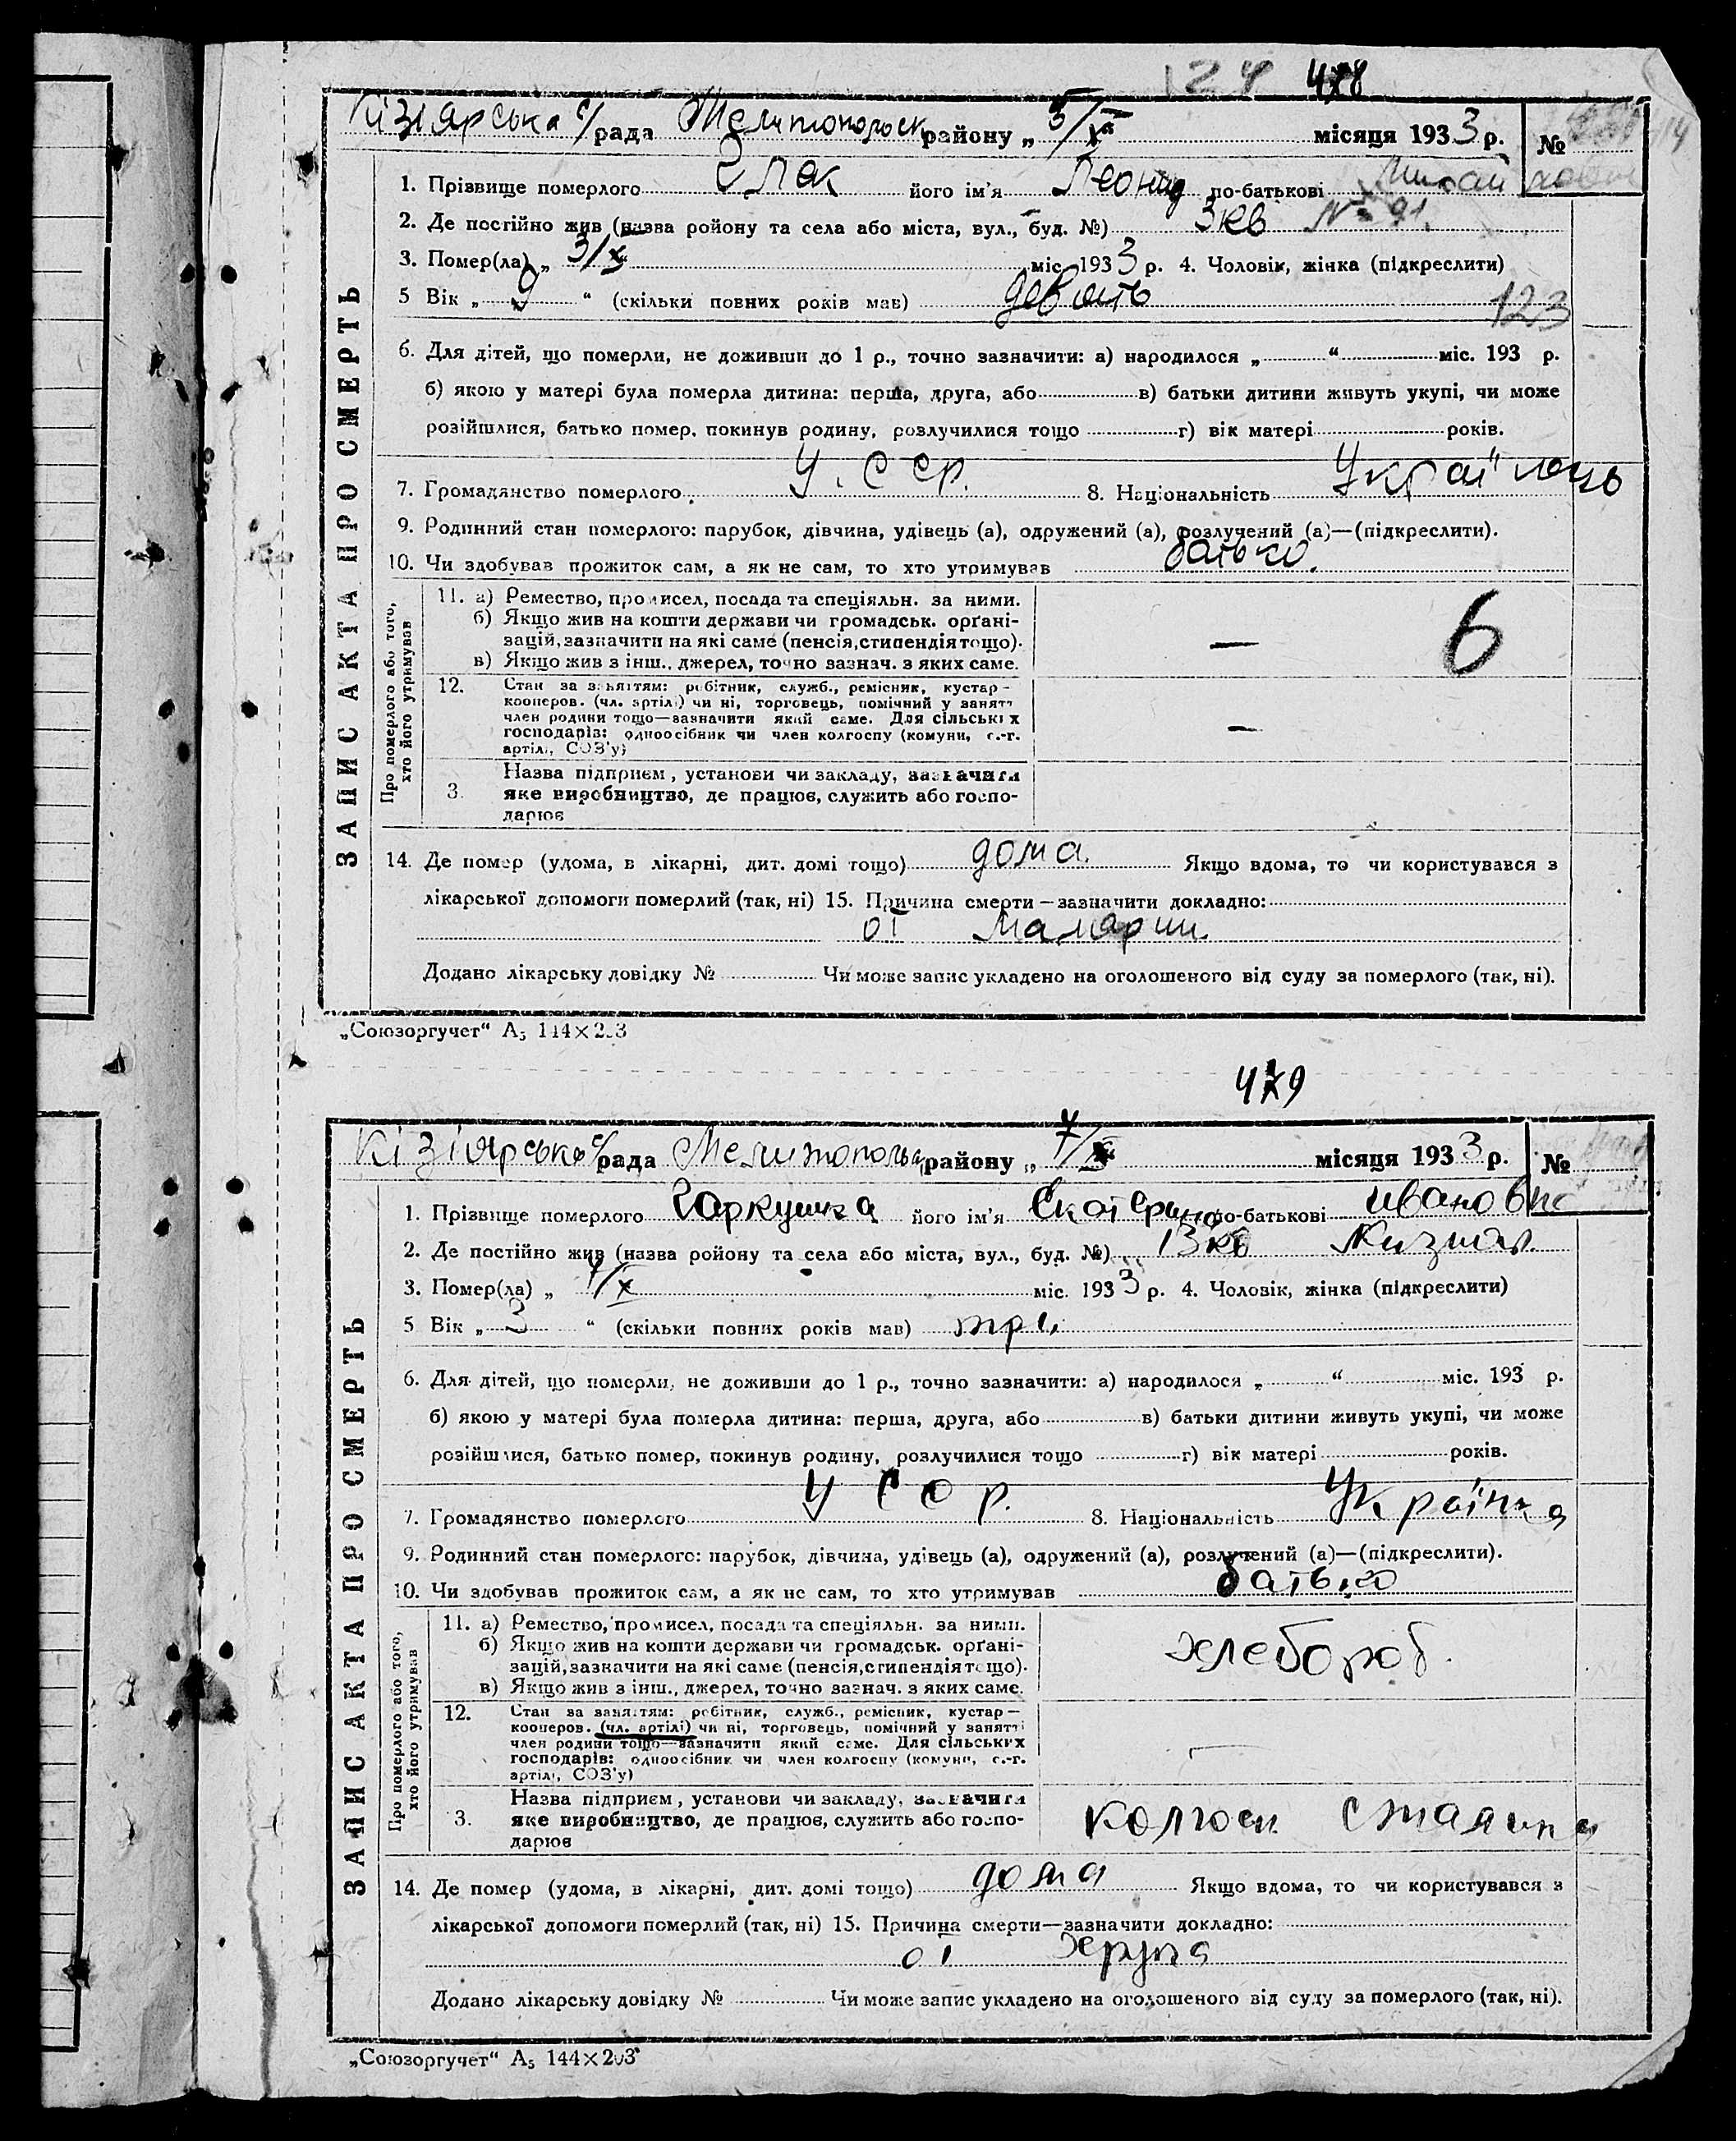 124 478
Кізіярська с/рада Мелитопольск району „ 5/X “ місяця 1933 р. №
1. Прізвище померлого його ім’я Леонид по-батькові
2. Де постійно жив (назва ройону та села або міста, вул., буд. №) 3 кв № 91.
3. Помер(ла) „ 3/X “ міс. 1933 р. 4. Чоловік, жінка (підкреслити)
5 Вік „ 9 “ (скільки повних років мав) девять
123
6. Для дітей, що померли, не доживши до 1 р., точно зазначити: а) народилося „ “ міс. 193 р.
б) якою у матері була померла дитина: перша, друга, або в) батьки дитини живуть укупі, чи може
розійшлися, батько помер, покинув родину, розлучилися тощо г) вік матері років.
7. Громадянство померлого У. С С Р. 8. Національність Українець
9. Родинний стан померлого: парубок, дівчина, удівець (а), одружений (а), розлучений (а)—(підкреслити).
10. Чи здобував прожиток сам, а як не сам, то хто утримував батько.
ЗАПИС АКТА ПРО СМЕРТЬ
Про померлого або того, хто його утримував
11. а) Ремество, промисел, посада та спеціяльн. за ними.
б) Якщо жив на кошти держави чи громадськ. орґані-
зацій, зазначити на які саме (пенсія, стипендія тощо). — 6
в) Якщо жив з інш., джерел, точно зазнач. з яких саме.
12. Стан за заняттям: робітник, служб., ремісник, кустар—
кооперов. (чл. артілі) чи ні, торговець, помічний у занятт
член родини тощо—зазначити який саме. Для сільських
господарів: одноосібник чи член колгоспу (комуни, с.-г. —
артілі, СОЗ’у)
Назва підприєм, установи чи закладу, зазначити
3. яке виробництво, де працює, служить або госпо-
дарює
14. Де помер (удома, в лікарні, дит. домі тощо) дома. Якщо вдома, то чи користувався з
лікарської допомоги померлий (так, ні) 15. Причина смерти—зазначити докладно:
от Малярии.
Додано лікарську довідку № Чи може запис укладено на оголошеного від суду за померлого (так, ні).
„Союзоргучет“ А₅ 144×203
479
Кізіярська с/рада Мелитопольськ району „ 7/X “ місяця 1933 р. №
1. Прізвище померлого Гаркушка його ім’я Екатерина по-батькові Ивановна
2. Де постійно жив (назва ройону та села або міста, вул., буд. №) 13 кв Кизиар.
3. Помер(ла) „ 7/X міс. 1933 р. 4. Чоловік, жінка (підкреслити)
5 Вік „ 3 “ (скільки повних років мав) три
6. Для дітей, що померли, не доживши до 1 р., точно зазначити: а) народилося „ “ міс. 193 р.
б) якою у матері була померла дитина: перша, друга, або в) батьки дитини живуть укупі, чи може
розійшлися, батько помер, покинув родину, розлучилися тощо г) вік матері років.
7. Громадянство померлого У С С Р. 8. Національність Українка
9. Родинний стан померлого: парубок, дівчина, удівець (а), одружений (а), розлучений (а)—(підкреслити).
10. Чи здобував прожиток сам, а як не сам, то хто утримував батько
ЗАПИС АКТА ПРО СМЕРТЬ
Про померлого або того, хто його утримував
11. а) Ремество, промисел, посада та спеціяльн. за ними.
б) Якщо жив на кошти держави чи громадськ. орґані- хлебороб.
зацій, зазначити на які саме (пенсія, стипендія тощо).
в) Якщо жив з інш., джерел, точно зазнач. з яких саме.
12. Стан за заняттям: робітник, служб., ремісник, кустар—
кооперов. (чл. артілі) чи ні, торговець, помічний у занятті
член родини тощо—зазначити який саме. Для сільських —
господарів: одноосібник чи член колгоспу (комуни, с.-г.
артілі, СОЗ’у)
Назва підприєм, установи чи закладу, зазначити
3. яке виробництво, де працює, служить або госпо- колгосп Сталина
дарює
14. Де помер (удома, в лікарні, дит. домі тощо) дома Якщо вдома, то чи користувався з
лікарської допомоги померлий (так, ні) 15. Причина смерти—зазначити докладно:
от
Додано лікарську довідку № Чи може запис укладено на оголошеного від суду за померлого (так, ні).
„Союзоргучет“ А₅ 144×203